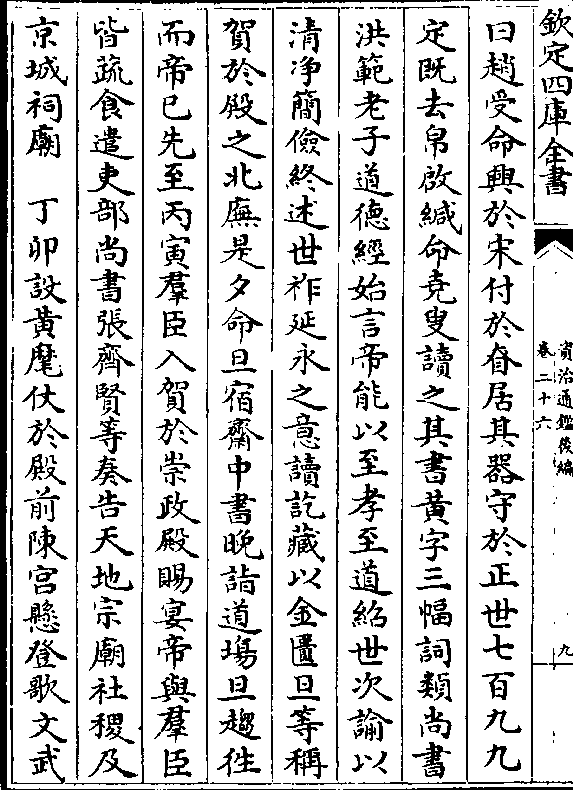 欽定四庫全書
資治通鑑後編
卷二十六
九
曰趙受命興於宋付於眘居其器守於正世七百九九
定既去帛啟緘命堯叟讀之其書黃字三幅詞類尚書
洪範老子道德經始言帝能以至孝至道紹世次諭以
清净簡儉終述世祚延永之意讀訖藏以金匱旦等稱
賀於殿之北廡是夕命旦宿齋中書晚詣道場旦趨往
而帝已先至丙寅羣臣入賀於崇政殿賜宴帝與羣臣
皆蔬食遣吏部尚書張齊賢等奏告天地宗廟社稷及
京城祠廟　丁卯設黃麾仗於殿前陳宮懸登歌文武